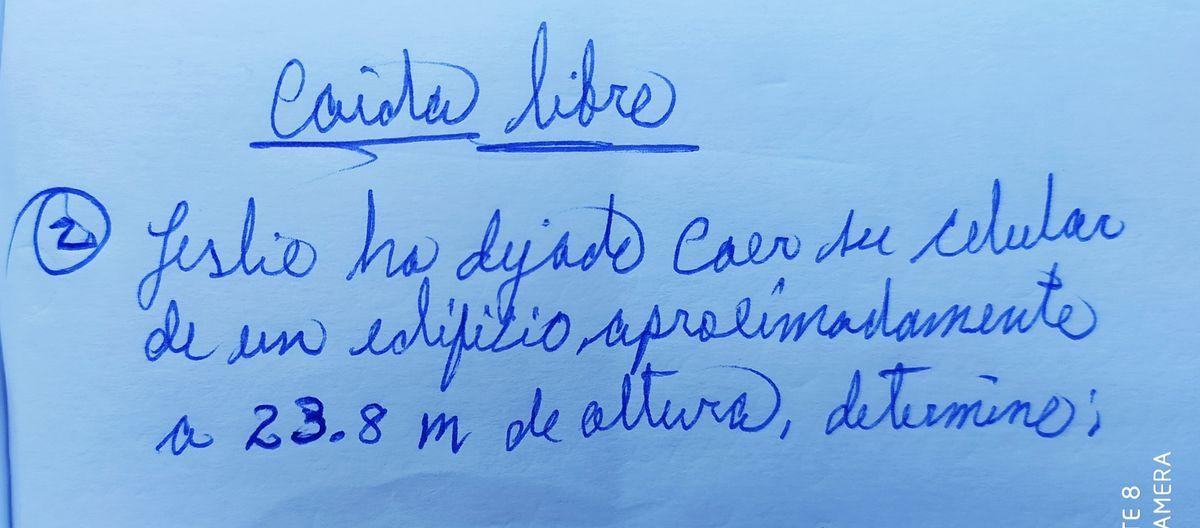 Caida libre
2 Leslie ha dejado caer su celular
de un edificio, aproximadamente
a 23.8 m de altura, determine;
TE 8
AMERA